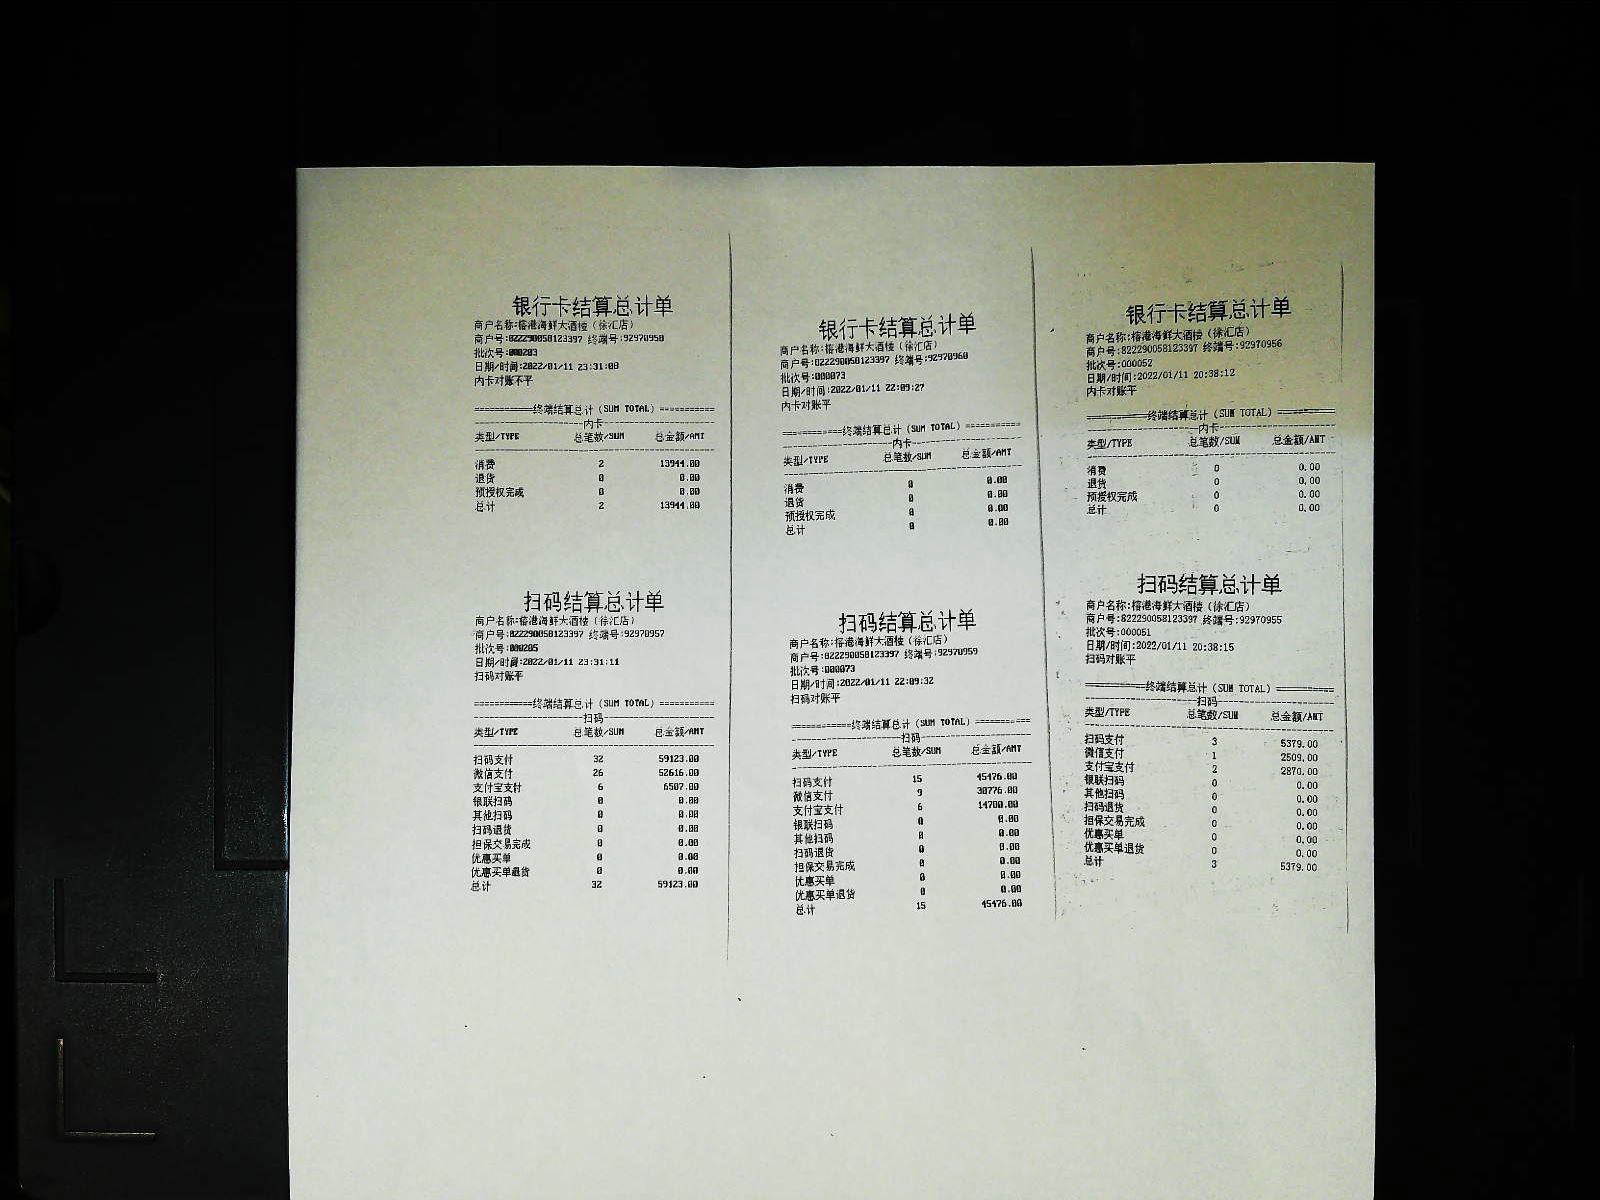 银行卡结算总计单
商户名称:榕港海鲜大酒楼(徐汇店)
商户号:822290058123397 终端号:92970958
批次号:000203
日期/时间:2022/01/11 23:31:08
内卡对账不平
===========终端结算总计(SUM TOTAL)===========
内卡
类型/TYPE 总笔数/SUM 总金额/AMT
消费 2 13944.00
退货 0 0.00
预授权完成 0 0.00
总计 2 13944.00
扫码结算总计单
商户名称:榕港海鲜大酒楼(徐汇店)
商户号:822290058123397 终端号:92970957
批次号:000205
日期/时间:2022/01/11 23:31:11
扫码对账平
===========终端结算总计(SUM TOTAL)===========
扫码
类型/TYPE 总笔数/SUM 总金额/AMT
扫码支付 32 59123.00
微信支付 26 52616.00
支付宝支付 6 6507.00
银联扫码 0 0.00
其他扫码 0 0.00
扫码退货 0 0.00
担保交易完成 0 0.00
优惠买单 0 0.00
优惠买单退货 0 0.00
总计 32 59123.00
银行卡结算总计单
商户名称:榕港海鲜大酒楼(徐汇店)
商户号:822290058123397 终端号:92970960
批次号:000073
日期/时间:2022/01/11 22:09:27
内卡对账平
===========终端结算总计(SUM TOTAL)===========
内卡
类型/TYPE 总笔数/SUM 总金额/AMT
消费 0 0.00
退货 0 0.00
预授权完成 0 0.00
总计 0 0.00
扫码结算总计单
商户名称:榕港海鲜大酒楼(徐汇店)
商户号:822290058123397 终端号:92970959
批次号:000073
日期/时间:2022/01/11 22:09:32
扫码对账平
===========终端结算总计(SUM TOTAL)===========
扫码
类型/TYPE 总笔数/SUM 总金额/AMT
扫码支付 15 45476.00
微信支付 9 30776.00
支付宝支付 6 14700.00
银联扫码 0 0.00
其他扫码 0 0.00
扫码退货 0 0.00
担保交易完成 0 0.00
优惠买单 0 0.00
优惠买单退货 0 0.00
总计 15 45476.00
银行卡结算总计单
商户名称:榕港海鲜大酒楼(徐汇店)
商户号:822290058123397 终端号:92970956
批次号:000052
日期/时间:2022/01/11 20:38:12
内卡对账平
===========终端结算总计(SUM TOTAL)===========
内卡
类型/TYPE 总笔数/SUM 总金额/AMT
消费 0 0.00
退货 0 0.00
预授权完成 0 0.00
总计 0 0.00
扫码结算总计单
商户名称:榕港海鲜大酒楼(徐汇店)
商户号:822290058123397 终端号:92970955
批次号:000051
日期/时间:2022/01/11 20:38:15
扫码对账平
===========终端结算总计(SUM TOTAL)===========
扫码
类型/TYPE 总笔数/SUM 总金额/AMT
扫码支付 3 5379.00
微信支付 1 2509.00
支付宝支付 2 2870.00
银联扫码 0 0.00
其他扫码 0 0.00
扫码退货 0 0.00
担保交易完成 0 0.00
优惠买单 0 0.00
优惠买单退货 0 0.00
总计 3 5379.00